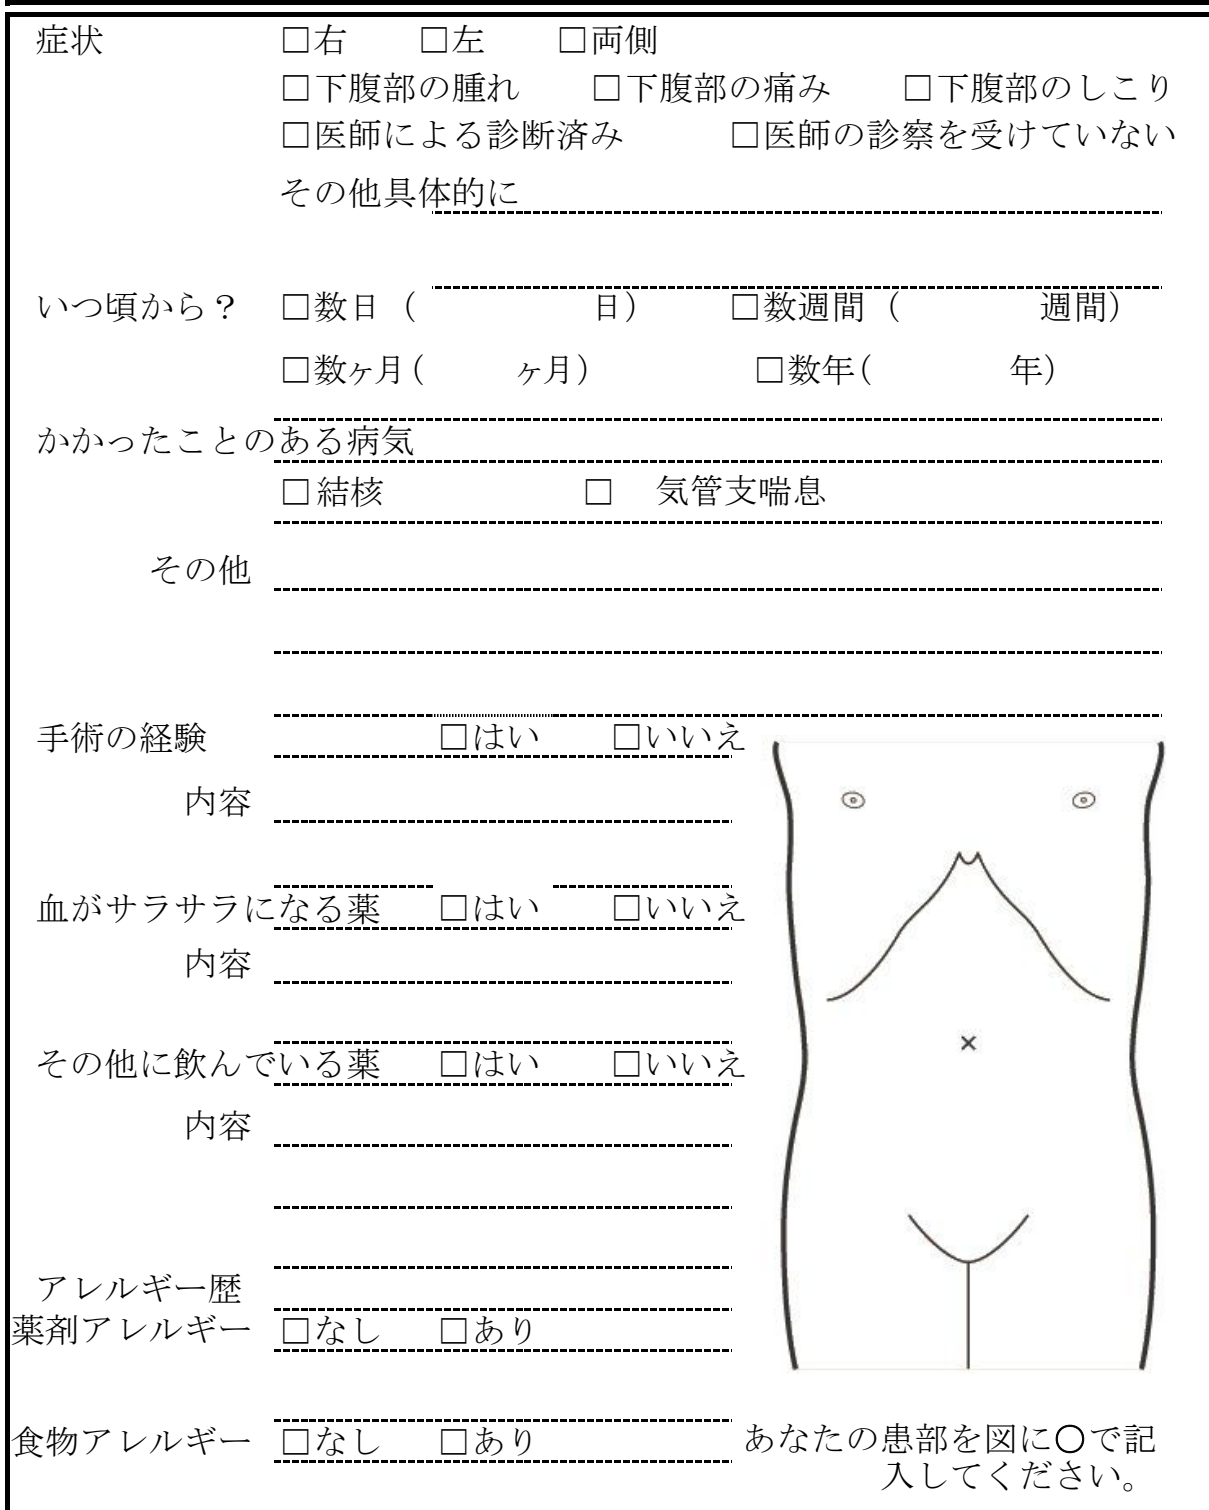 症状 □右 □左 □両側
□下腹部の腫れ □下腹部の痛み □下腹部のしこり
□医師による診断済み □医師の診察を受けていない
その他具体的に
いつ頃から？ □数日（ 日） □数週間（ 週間）
□数ヶ月( ヶ月） □数年( 年）
かかったことのある病気
□結核 □ 気管支喘息
その他
手術の経験 □はい □いいえ
内容
血がサラサラになる薬 □はい □いいえ
内容
その他に飲んでいる薬 □はい □いいえ
内容
アレルギー歴
薬剤アレルギー □なし □あり
食物アレルギー □なし □あり
あなたの患部を図に〇で記
入してください。